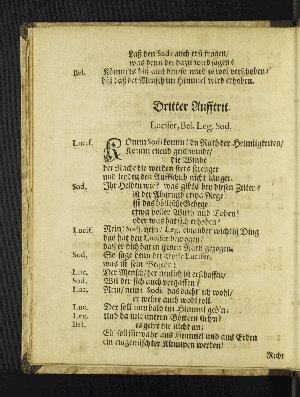 Laß den Sod. auch erst fragen/
was denn der darzu wird sagen?
Bel. Könnt es biß auf
biß daß der Mensch im Himmel wird erhoben.
Dritter Aufftrit.
Lucifer, Bel. Leg. Sod.
Lucif. Komm Sod. komm/ du Rath der Heimligkeiten/
Komm eilend geschwinde/
die Winde
der Rache die werden stets strenger
und leiden den Auffschub nicht länger.
Sod. Ihr Helden wie? was gibts bey diesen Zeiten?
ist der Abgrund etwa Rege
ist das höllische Gehege
etwa voller Wuth und Toben?
oder was hat sich erhoben?
Lucif. Nein/ Sod. nein/ Leg. ein ander wichtig Ding
das hat den Lucifer bewogen/
daß er dich hat in seinen Rath gezogen.
Sod. So sage denn der grosse Lucifer,
was ist sein Begehr?
Luc. Der Mensch/ der neulich ist erschaffen/
Sod. Wil der sich auch vergaffen?
Luc. Nein/ nein: Sod. das dacht ich wohl/
er wehre auch wohl toll.
Luc. Der soll nun bald im Himmel gehn:
Leg. Und da mit unsern Göttern stehn?
Bel. es geht dir nicht an:
Ey! soll fürwahr aus Himmel und aus Erden
ein eingemischter Klumpen werden!
Recht